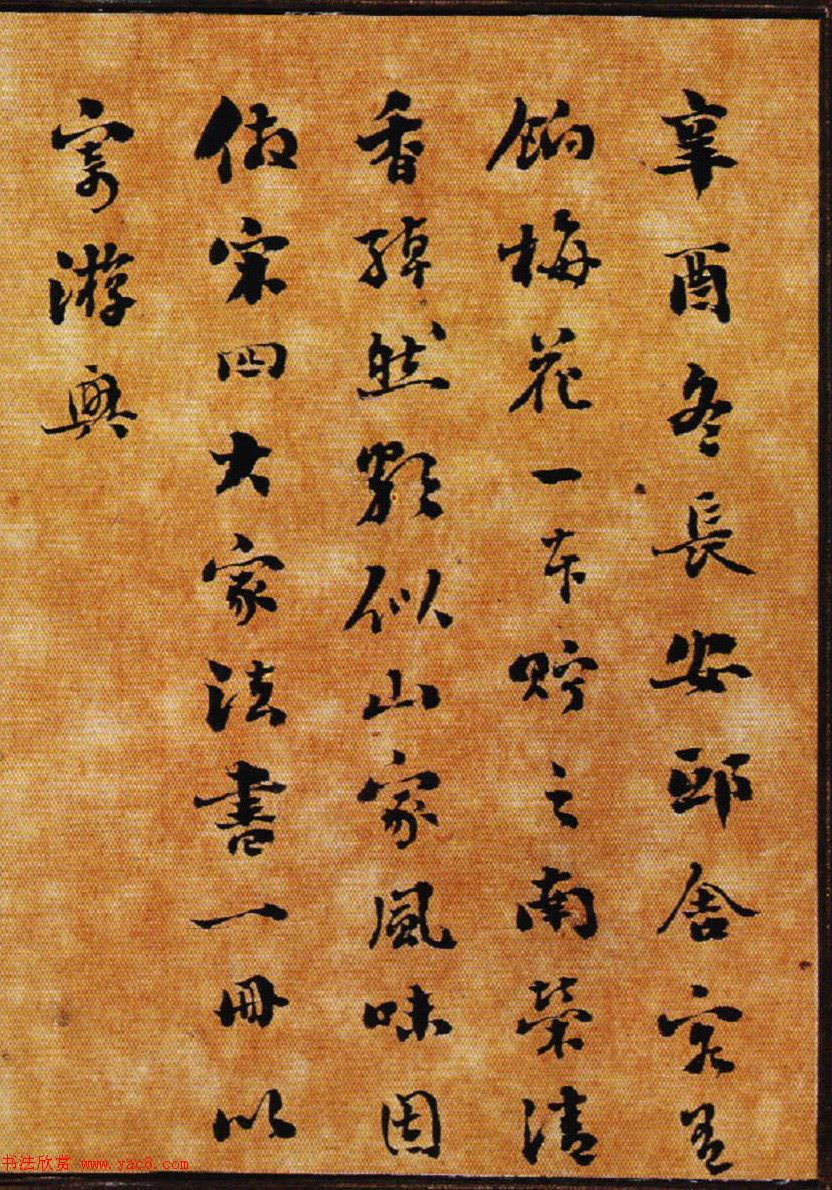 辛酉冬長安邸舍客有
餉梅花一本貯之南榮清
香綽然頗似山家風味因
倣宋四大家法書一冊以
寄游興
书法欣赏 www.yac8.com